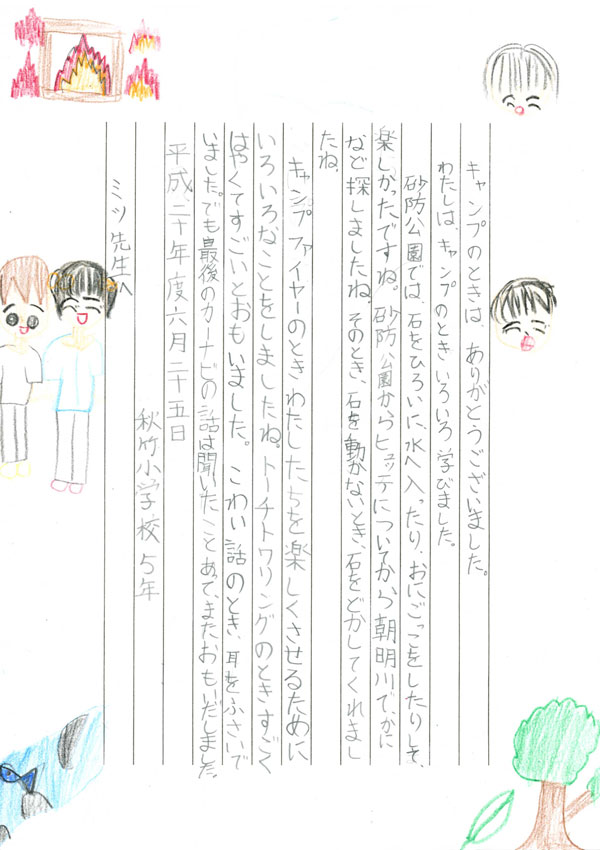 キャンプのときは、ありがとうございました。
わたしは、キャンプのときいろいろ学びました。
砂防公園では、石をひろいに、水へ入ったり、おにごっこをしたりして、
楽しかったですね。砂防公園からヒュッテについてから朝明川で、かに
など探しましたね。そのとき、石を動かないとき、石をどかしてくれまし
たね。
キャンプファイヤーのときわたしたちを楽しくさせるために
いろいろなことをしましたね。トーチトワリングのときすごく
はやくてすごいとおもいました。こわい話のとき、耳をふさいで
いました。でも最後のカーナビの話は聞いたことあって、またおもいだしました。
平成二十年度六月二十五日
秋竹小学校5年
ミツ先生へ